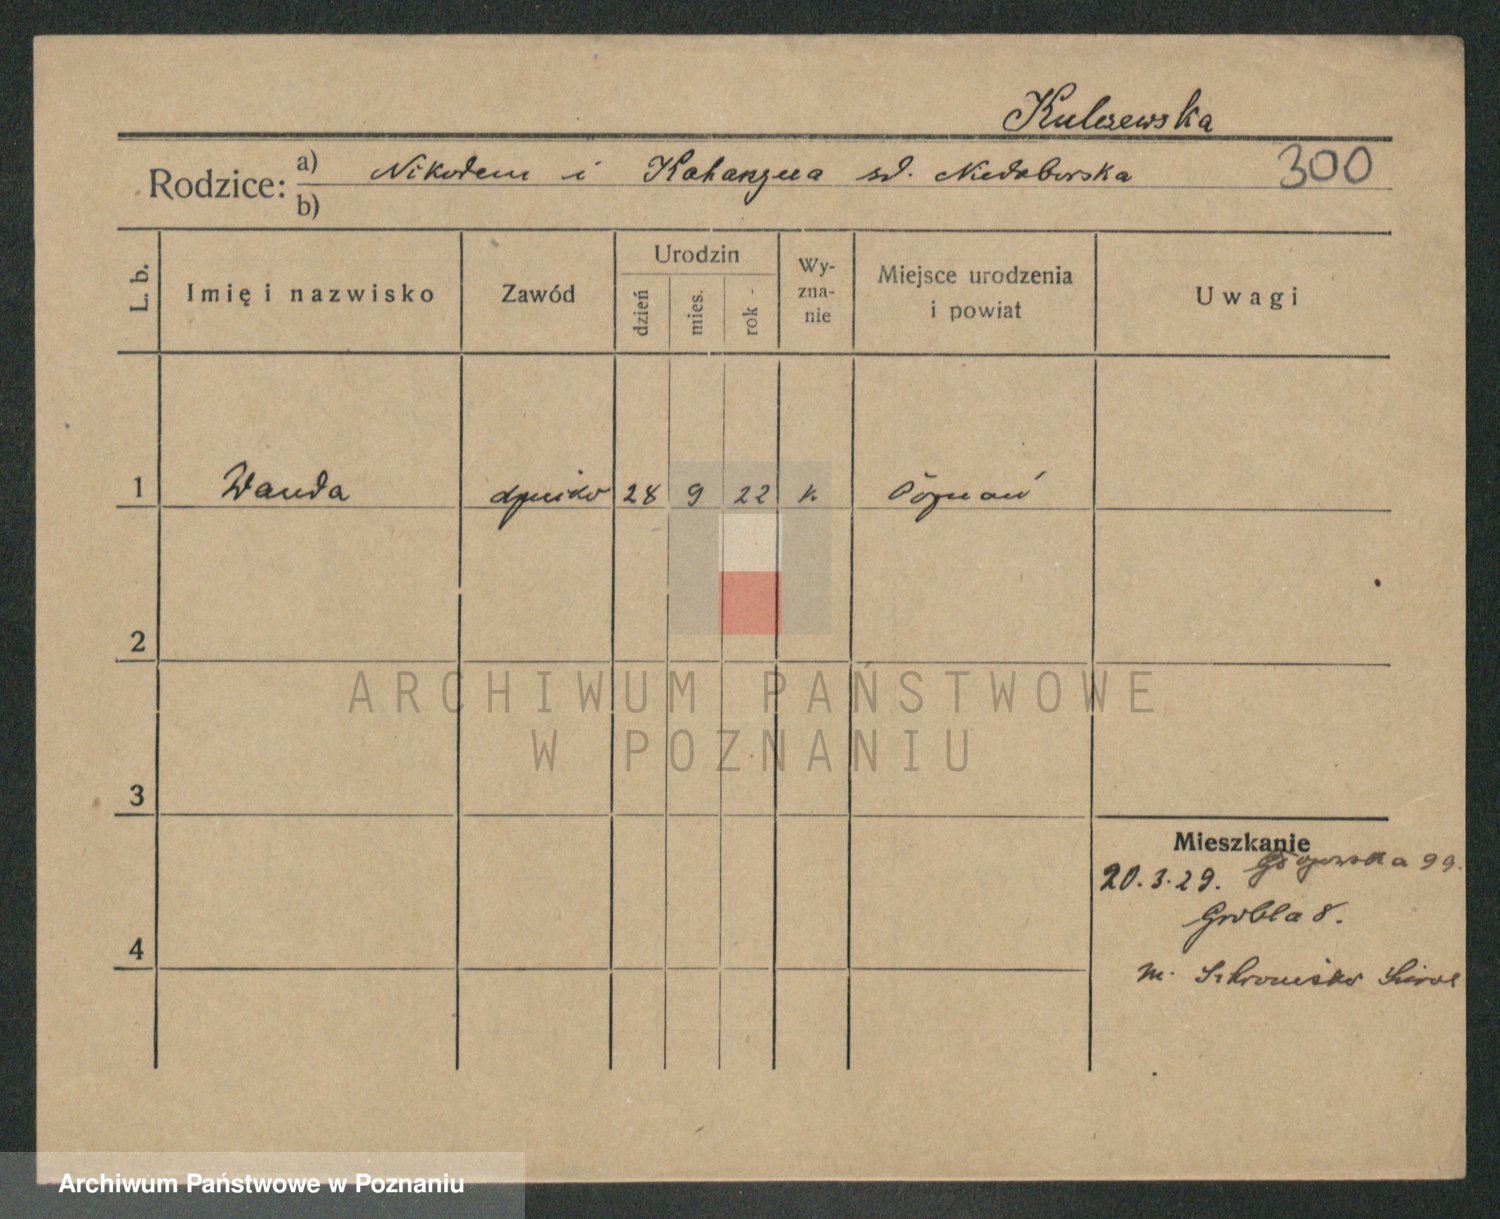 Kulczewska
Rodzice: a) Nikodem i Katarzyna zd. Niedoborska 300
b)
L. b. Imię i nazwisko Zawód Urodzin dzień mies. rok Wy-zna-nie Miejsce urodzenia i powiat Uwagi
1 Wanda 28 9 22 k. Poznań
2
ARCHIWUM PAŃSTWOWE
W POZNANIU
3
Mieszkanie
Głogowska 99.
20.3.29.
Grobla 8.
4
m. Schronisko
Archiwum Państwowe w Poznaniu